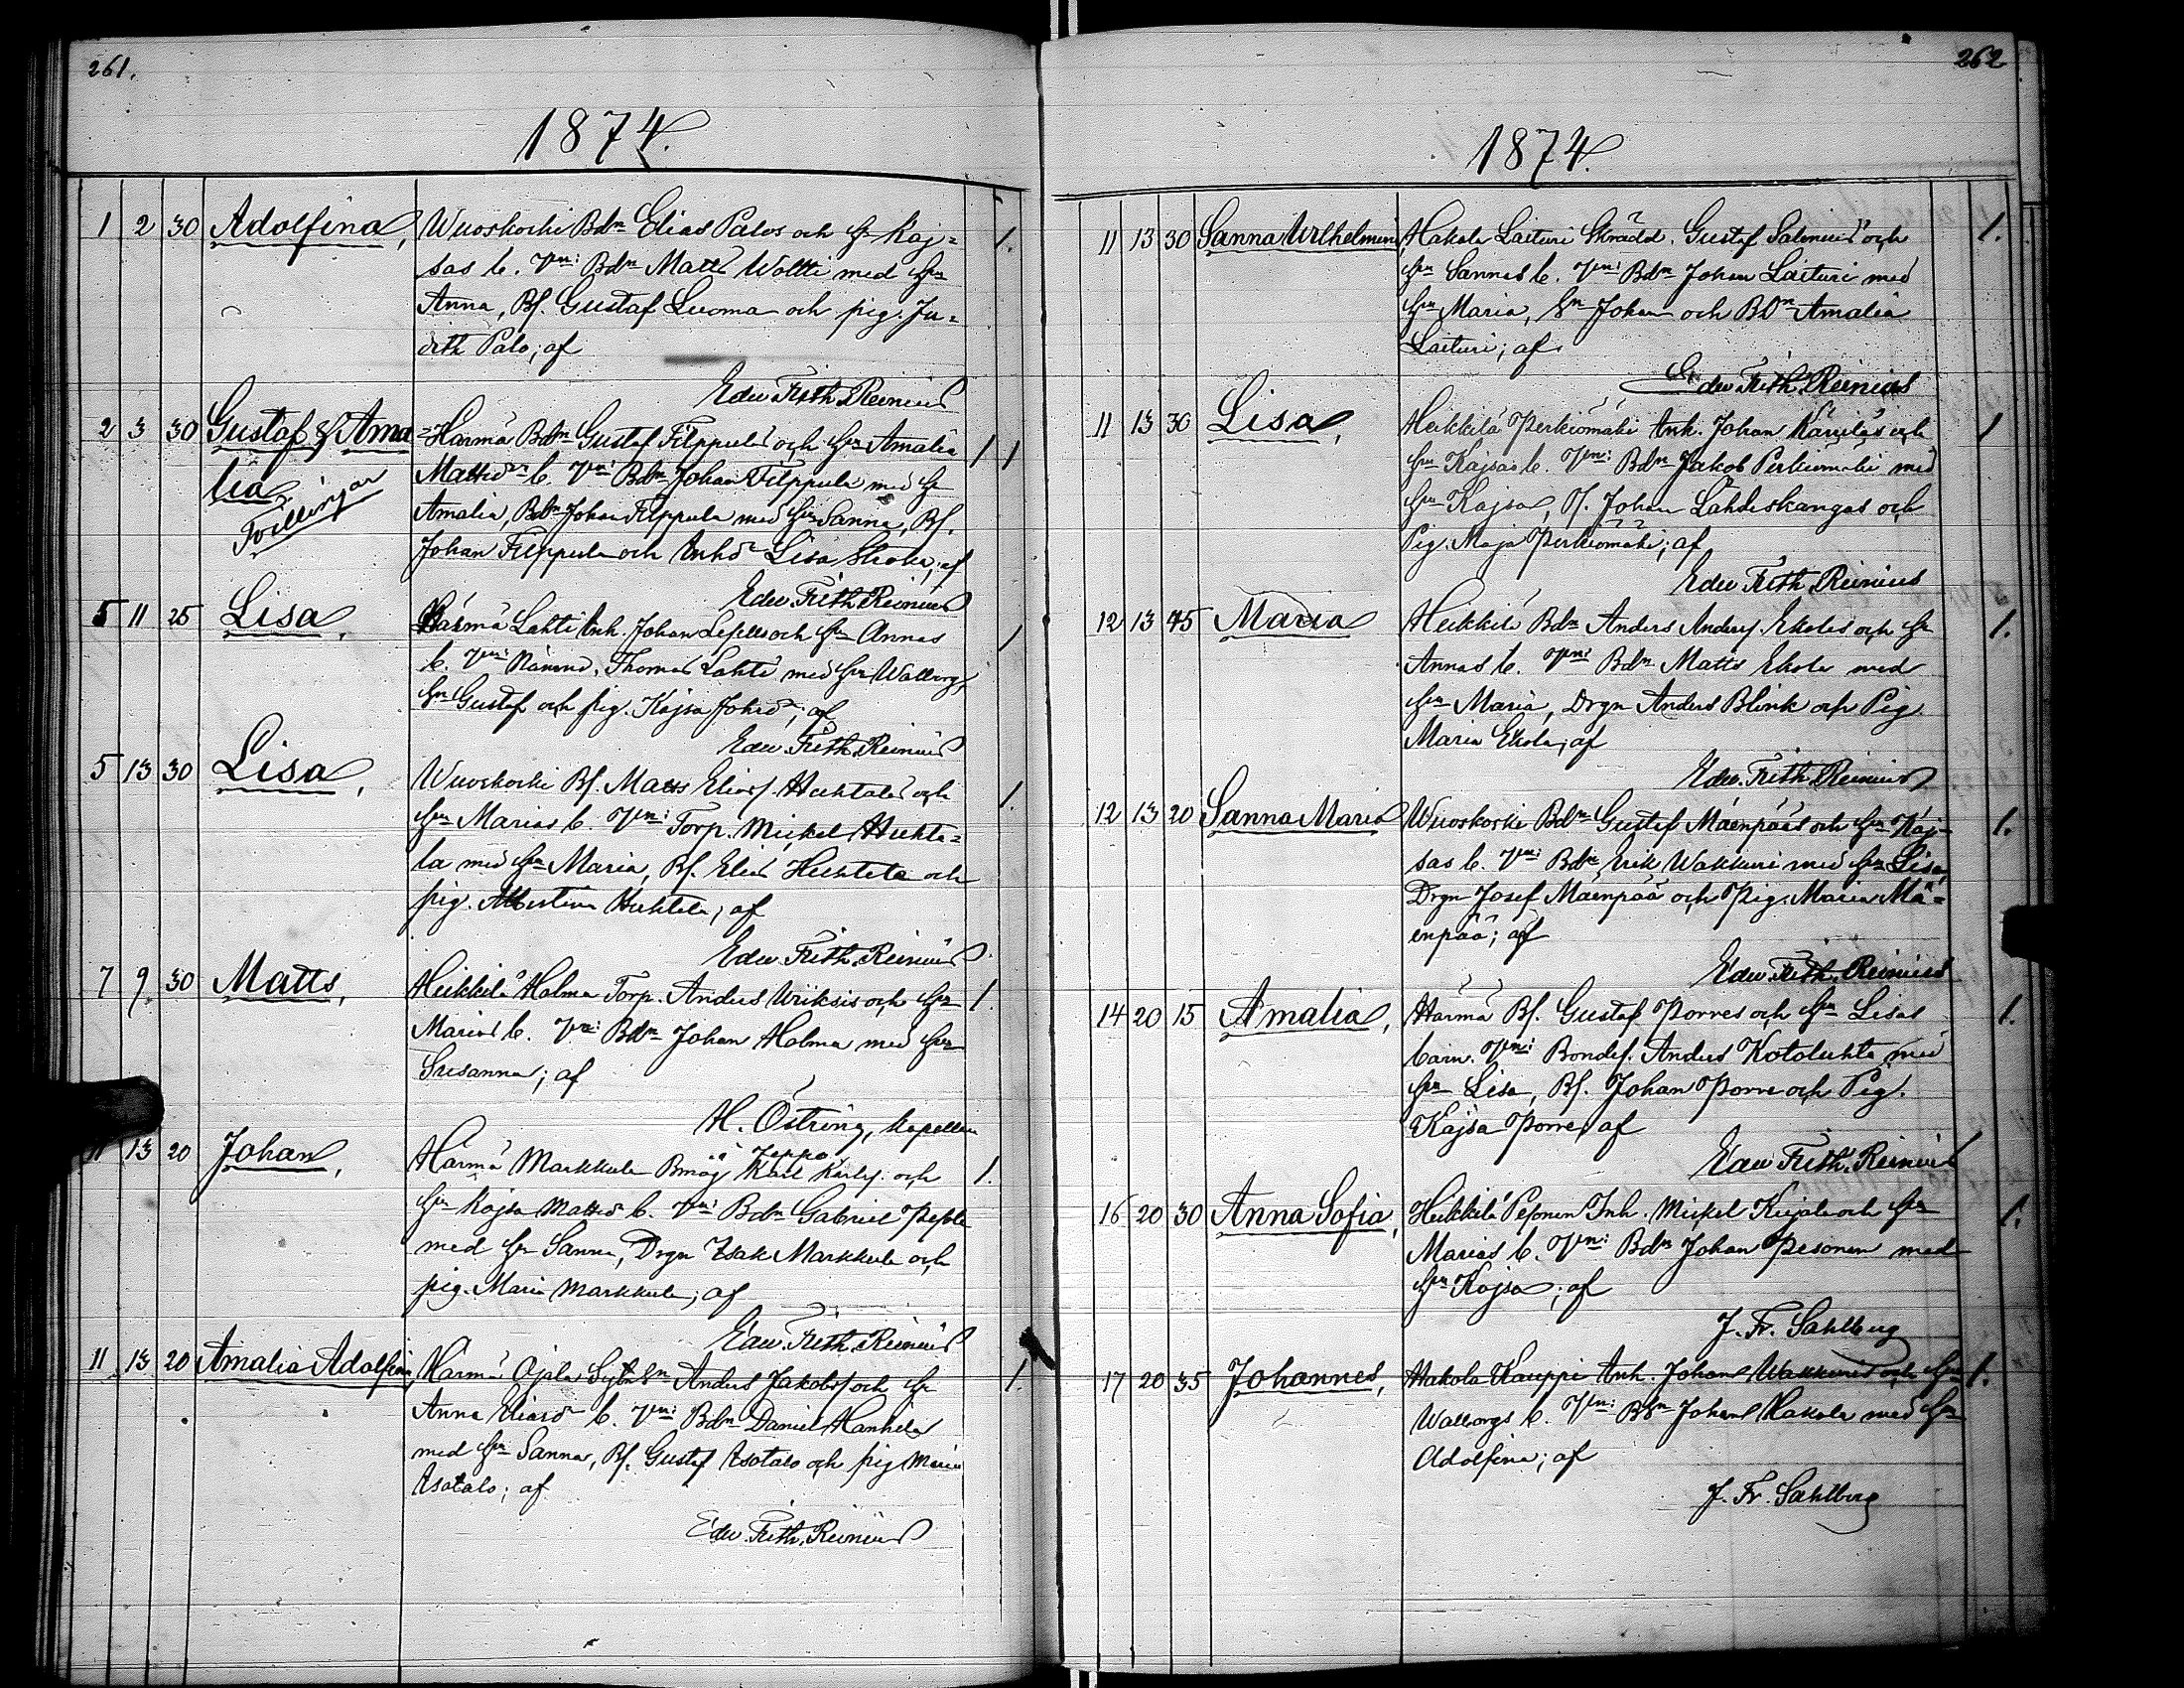 261.
1874.
1 2 30 Adolfina, Wuoskoski Bdn Elias Palos och hu Kaj=
sas b. Vn: Bdn Matts Woltti med hu
Anna, Bs. Gustaf Luoma och pig. Ju=
dith Palo; af
Edw. Frith. Reinius
2 3 30 Gustaf & Ama= Härmä Bdn Gustaf Filppulas och hu Amalia 1 1
lia, Mattsdr b. Vn: Bdn Johan Filppula med hu
Tvillingar Amalia, Bdn Johan Filppula med hu Sanna, Bs.
Johan Filppula och Inhdr Lisa; af
Edw. Frith. Reinius
5 11 25 Lisa, Härmä Lahti Inh. Johan och hu Annas 1
b. Vn: Nämnd. Thomas Lahti med hu Walborg,
Sn Gustaf och pig. Kajsa Johsdr; af
Edw. Frith. Reinius
5 13 30 Lisa, Wuoskoski Bs. Matts Eliass. Huhtalas och 1.
hu Marias b. Vn: Torp. Mickel Huhta=
la med hu Maria, Bs. Elias Huhtala och
pig. Albertina Huhtala; af
Edw. Frith. Reinius
7 9 30 Matts, Heikkilä Holma Torp. Anders och hu 1.
Marias b. Vn: Bdn Johan Holma med hu
Susanna; af
H. Östring, kapellan
i Jeppo
11 13 20 Johan, Härmä Markkula Bmåg Karl Karls. och 1.
hu Kajsa Mattsdr b. Vn: Bdn Gabriel
med hu Sanna, Drgn Isak Markkula och
pig. Maria Markkula; af
Edw. Frith. Reinius
11 13 20 Amalia Adolfina, Härmä Ojala Sytn Sn Anders Jakobs. och hu 1.
Anna Eliasdr b. Vn: Bdn Daniel Hanhila
med hu Sanna, Bs. Gustaf Isotalo och pig Maria
Isotalo; af
Edw. Frith. Reinius
262
1874.
11 13 30 Sanna Wilhelmina, Hakola Laituri Skrädd. Gustaf Salenius och 1.
hu Sannas b. Vn: Bdn Johan Laituri med
hu Maria, Sn Johan och Bdr Amalia
Laituri; af
Edw. Frith. Reinius
11 13 30 Lisa, Heikkilä Perkiömäki Inh. Johan och 1
hu Kajsas b. Vn: Bdn Jakob Perkiömäki med
hu Kajsa, Johan Lähdeskangas och
Pig. Maja Perkiömäki; af
Edw. Frith. Reinius
12 13 45 Maria Heikkilä Bdn Anders Anderss. Ekolas och hu 1.
Annas b. Vn: Bdn Matts Ekola med
hu Maria, Drgn Anders Blink och Pig.
Maria Ekola; af
Edw. Frith. Reinius
12 13 20 Sanna Maria Wuoskoski Bdn Gustaf Mäenpääs och hu Kaj- 1.
sas b. Vn: Bdn Erik Wakkuri med hu Lisa,
Drgn Josef Mäenpää och Pig. Maria Mä=
enpää; af
Edw. Frith. Reinius
14 20 15 Amalia, Härmä Bs. Gustaf Porres och hu Lisas 1.
barn. Vn: Bondes. Anders Kotoluhta med
hu Lisa, Bs. Johan Porre och Pig.
Kajsa Porre; af
Edw. Frith. Reinius
16 20 30 Anna Sofia, Heikkilä Pesonen Inh. Mickel Kujala och hu 1.
Marias b. Vn: Bdn Johan Pesonen med
hu Kajsa; af
J. Fr. Sahlberg
17 20 35 Johannes, Hakola Kauppi Inh. Johan Wakkuris och hu 1.
Walborgs b. Vn: Bdn Johan Hakola med hu
Adolfina; af
J. Fr. Sahlberg